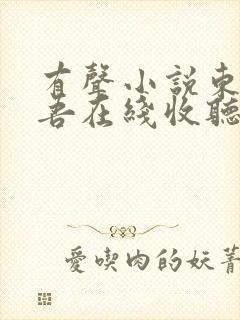 有聲小說東
吾在綫收聽
愛喫肉的妖菁